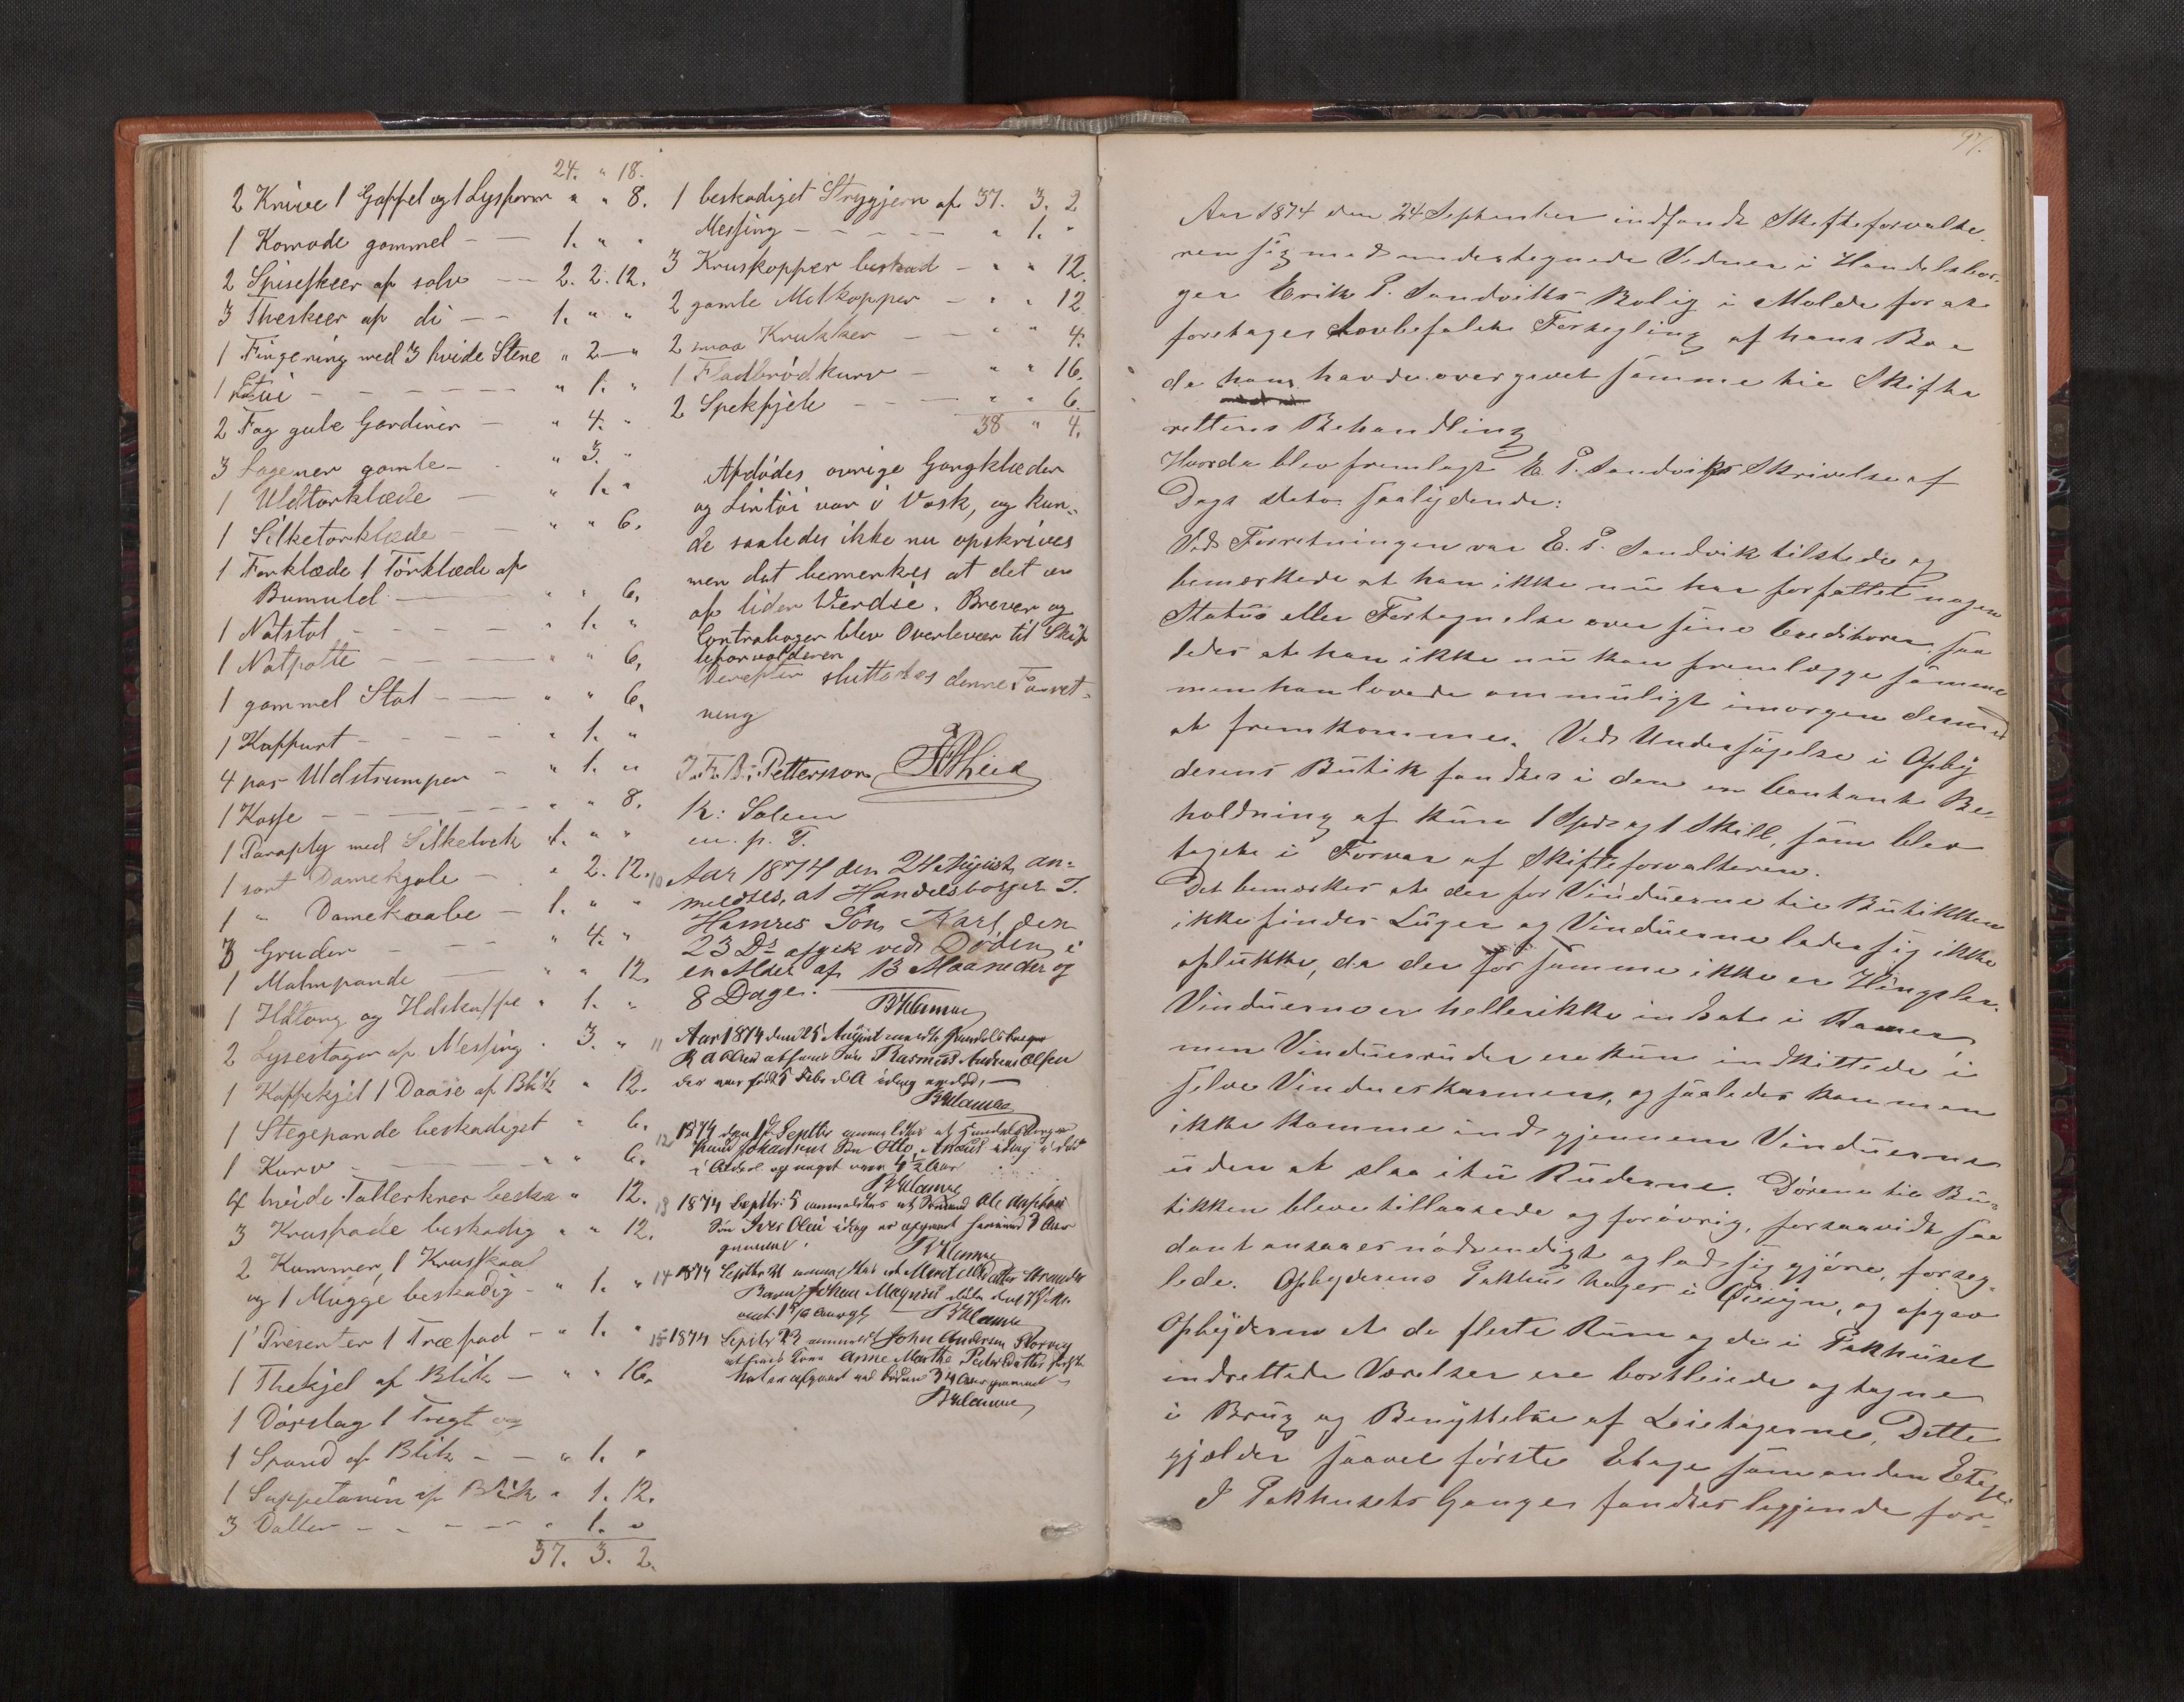 24. " 18.
2 Knive 1 Gaffel og 1 Lysform " " 8.
1 Komode gammel - - 1. " "
2 Spiseskeer af solv - - 2. 2. 12.
3 Theskeer af di - - 1. " "
1 Fingering med 3 hvide Stene " 2 "
1 Etui - - - - - " 1. "
2 Fag gule Gardiner - " 4. "
3 Lagener gamle - " 3. "
1 Uldtørklæde - " 1. "
1 Silketørklæde - - " " 6.
1 Forklæde 1 Tørklæde af
Bumuld - " " 6.
1 Natstol - - - - " 1. "
1 Natpotte - - - - " " 6.
1 gammel Stol - - " " 6.
1 Kuffurt - - - - " 1. "
4 par Uldstrømper - " 1. "
1 Kasse - - - - - " " 8.
1 Paraply med Silketræk 1. " "
1 sort Damekjole - " 2. 12.
1 " Damekaabe - 1. " "
3 Gruder - - - " 4. "
1 Malmpande - " " 12.
1 Ildtang og Ildskuffe " 1. "
2 Lysestager af Messing " 3. "
1 Kaffekjel 1 Daase af Blik " 12.
1 Stegepande beskadiget " 6.
1 Kurv - - - - " " 6.
4 hvide Tallerkner beska " 12.
3 Krusfade beskadig " " 12.
2 Kummer, 1 Kruskaal
og 1 Mugge beskadig - " 1. "
1 Presenter 1 Træfad - " 1. "
1 Thekjel af Blik - " " 16.
1 Dørslag 1 Tragt og
1 Spand af Blik - - " 1. "
1 Suppeterin af Blik " 1. 12.
3 Daller - - - - " 1. "
37. 3. 2.
1 beskadiget Strygjern af 37. 3. 2
Messing - - - - - " 1. "
3 Kruskopper beskad - " " 12.
2 gamle Melkopper - " " 12
2 smaa Krukker - " " 4.
1 Fladbrødkurv - " " 16.
2 Spekfjele - - - " " 6.
38 " 4.
Afdødes øvrige Gangklæder
og Lintøi var i Vask, og kun-
de saaledes ikke nu opskrives
men det bemerkes at det er
af liden Værdie. Brever og
Contraboger blev Overleveer til Skif
teforvalderen
Derefter sluttedes denne Forret-
ning
J. F. A. Petterson
K: Solem
m. p. P.
10 Aar 1874 den 24 August an-
meldtes, at Handelsborger T.
Hamres Søn Karl den
23 Ds afgik ved Døden i
en Alder af 13 Maaneder og
8 Dage.
BKlamer
11 Aar 1874 den 25 August anmeldte Handelsborger
R A Olsen at hans Søn Rasmus Andreas Olsen
der var født 5 Febr d A idag er død. -
BKlamer
12 1874 den 1ste Septbr anmeldtes at Handelsborger
Knud Johansens Søn Otto, Anton idag er død
i Alder og noget over 4 1/2 Aar
BKlamer
13 1874 Septbr 5 anmeldtes at Ole
Søn Iver Olai idag er afgaaet 7 Aar
gammel.
BKlamer
14 1874 Septbr 21 anmeldtes at
Barn Johan Magnus
BKlamer
15 1874 Septbr 23 anmeldt John Andersen Storvig
at hans Kone Anne Marthe Pedersdatter
Nat er afgaaet ved Døden 34 Aar gammel -
BKlamer
97.
Aar 1874 den 24 September indfandt Skifteforvalte-
ren sig med undertegnede Vidner i Handelsbor-
ger Erik P. Sandviks Bolig i Molde for at
foretages Lovbefalede Forsegling af hans Bo
da hans havde overgivet samme til Skifte
rettens Behandling
Hvorda blev fremlagt E. P. Sandviks Skrivelse af
Dags Dato saalydende:
Ved Forretningen var E. P. Sandvik tilstede og
bemærkede at han ikke nu har forfattet nogen
Status eller Fortegnelse over sine Creditorer saa
ledes at han ikke nu kan fremlægge samme
men han lovede om muligt imorgen dermed
at fremkomme. Ved Undersøgelse i Opby
derens Butik fandtes i den en Contant Be-
holdning af kun 1 Spd og 1 Skill, som blev
tagen i Forvar af Skifteforvalteren.
Det bemærkes at der for Vinduerne til Butikken
ikke findes Luger og Vinduerne lader sig ikke
oplukke, da der for samme ikke er Hingsler.
Vinduerne er heller ikke indsat i Ramer,
men Vinduesruder ere kun indkittede i
selve Vindueskarmen, og saaledes kan man
ikke komme ind gjennem Vinduerne
uden at slaa itu Ruderne. Dørene til Bu-
tikken bleve tillaasede og forøvrig, forsaavidt saa
dant ansaaes nødvendigt og lod sig gjøre, forseg-
lede. Opbyderens Pakhus toges i Øiesyn, og opgav
Opbyderen at de fleste Rum og de i Pakhuset
indrettede Værelser ere bortleiede og tagne
i Brug og Benyttelse af Leietagerne. Dette
gjælder saavel første Etage som anden Etage.
I Pakhusets Ganger fandtes liggende for-